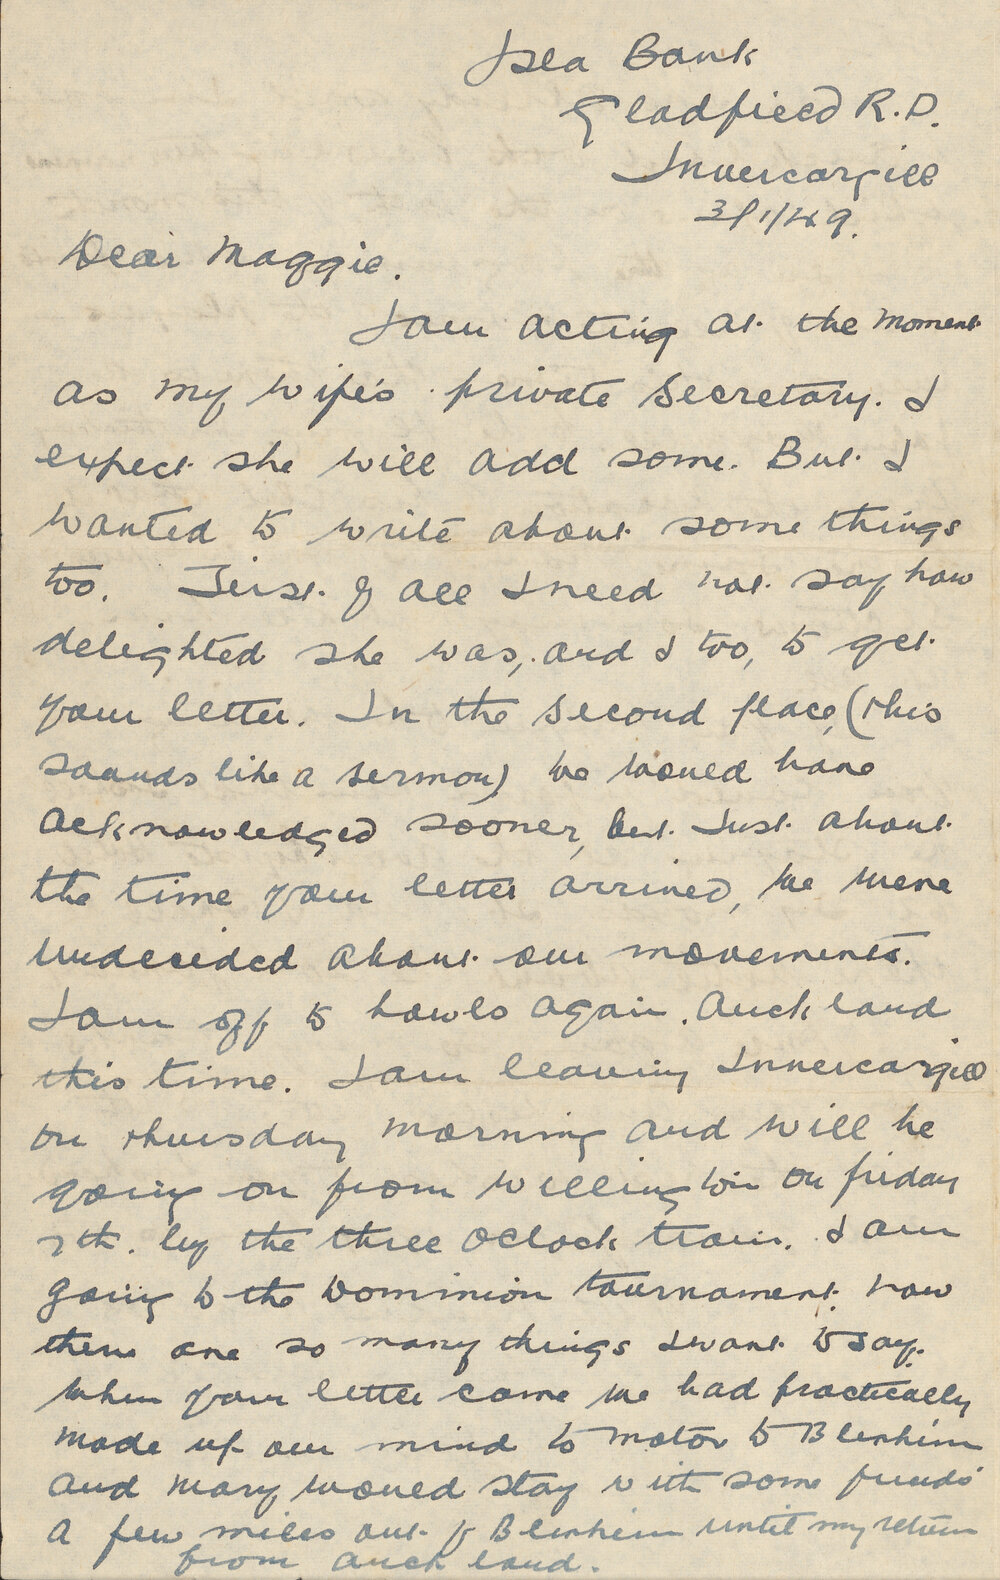 Isla Bank
Gladfield R.D.
Invercargill
3/1/49.
Dear Maggie.
I am acting at the moment
as my wife's private secretary. I
expect she will add some. But I
wanted to write about some things
too. First of all I need not say how
delighted she was, and I too, to get
your letter. In the second place, (this
sounds like a sermon) we would have
acknowledged sooner, but just about
the time your letter arrived, we were
undecided about our movements.
I am off to bowls again. Auckland
this time. I am leaving Invercargill
on thursday morning and will be
going on from Wellington on friday
7th. by the three oclock train. I am
going to the Dominion tournament. now
there are so many things I want to say.
When your letter came we had practically
made up our mind to motor to Blenheim
and Mary would stay with some friends
a few miles out of Blenheim until my return
from Auckland.